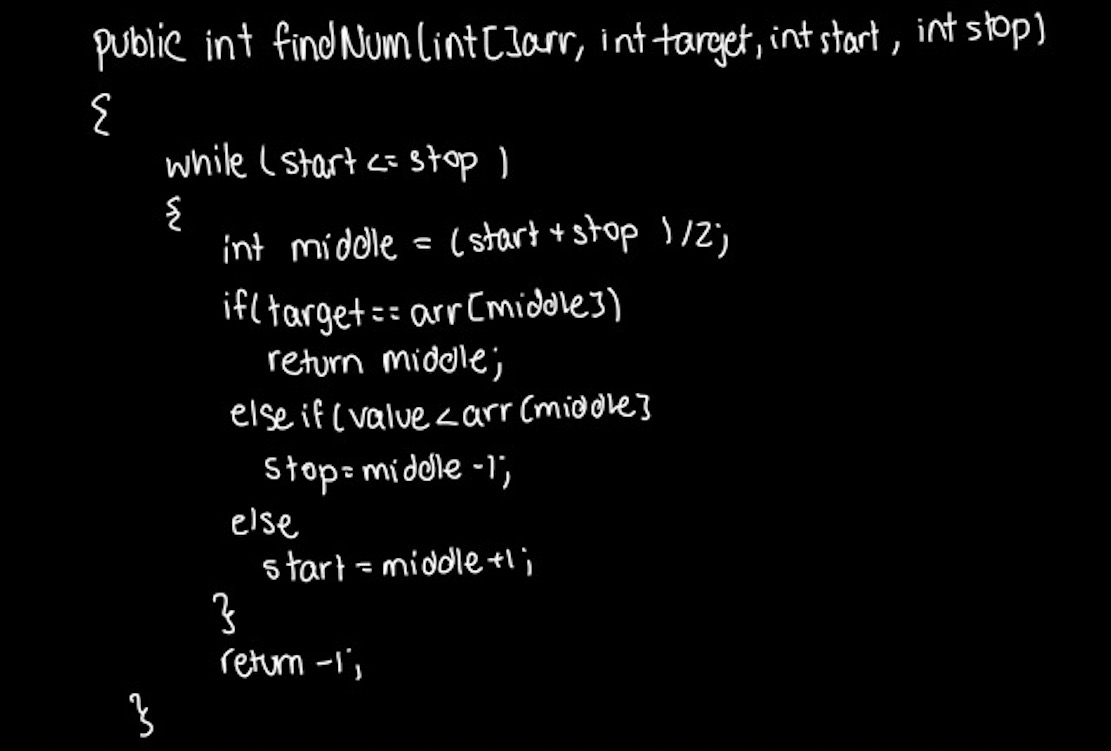 public int findNum(int[]arr, int target, int start, int stop)
{
while (start <= stop )
{
int middle = (start + stop ) /2;
if(target == arr[middle])
return middle;
else if (value < arr[middle]
stop = middle -1;
else
start = middle +1;
}
return -1;
}